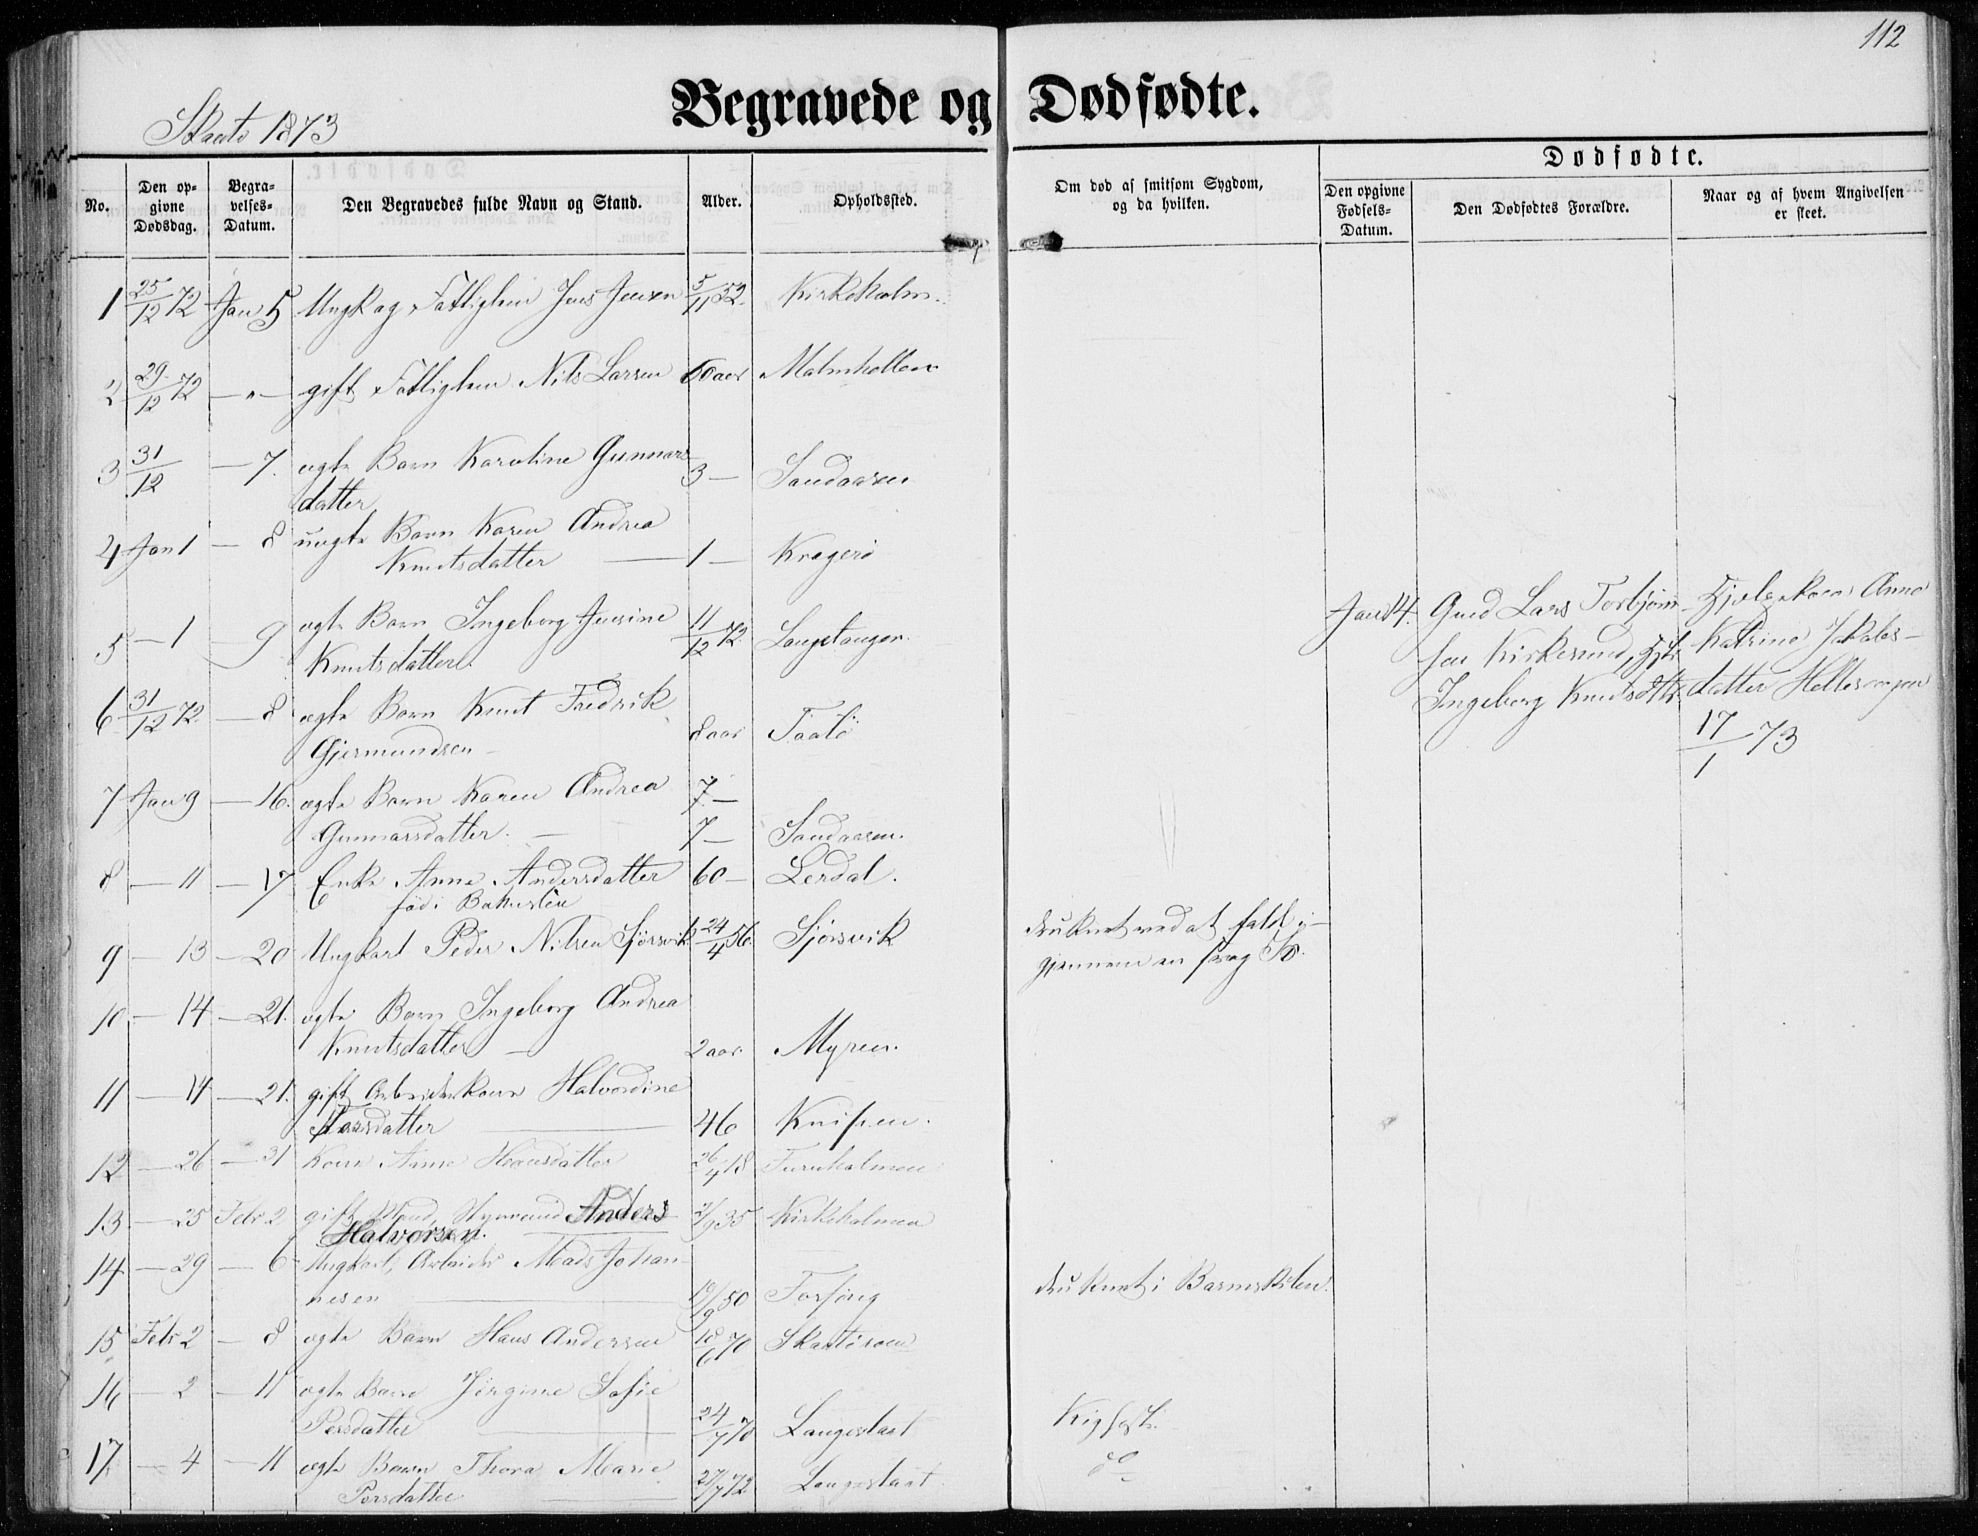 112
Skaatö 1873
Begravede og Dødfødte.
Dødfødte.
No.
Den op-
givne
Dødsdag.
Begra-
velses-
Datum.
Den Begravedes fulde Navn og Stand.
Alder.
Opholdssted.
Om død af smitsom Sygdom,
og da hvilken.
Den opgivne
Fødsels-
Datum.
Den Dødfødtes Forældre.
Naar og af hvem Angivelsen
er skeet.
1 25/12 72 Jan 5 Ungk og Fattiglem Jens Jensen 5/11 52. Kirkeholm.
2 29/12 72 — " — gift Fattiglem Nils Larsen 60 aar
3 31/12 — 7. ægte Barn Karoline Gunnars 3 — Sandaasen
datter
4 Jan 1 — 8 uægte Barn Karen Andrea
Knutsdatter — 1 — Kragerö
5 — 1 — 9 ægte Barn Ingeborg Jensine 11/12 72 Langetangen
Knutsdatter.
6 31/12 72 — 8 ægte Barn Knut Fredrik
Gjermundsen — 8 aar Taatö
7 Jan 9 — 16. ægte Barn Karen Andrea 7 —
Gunnarsdatter. — 7 — Sandaasen.
8 — 11 — 17 Enke Anne Andersdatter 60 — Lerdal.
föd i
9 — 13 — 20 Ungkarl Peder Nilsen Sjörsvik 24/4 56. Sjörsvik
druknet ved at falde i-
gjennem en svag Is.
10 — 14 — 21. ægte Barn Ingeborg Andrea
Knutsdatter — 2 aar. Myren.
11 — 14 — 21. gift Arbeiderkone Halvordine
datter — 46 Knipen.
12 — 26 — 31 Kone Anne Hansdatter 26/4 18 Furuholmen
13 — 25 Febr 2 gift Anders /9 35 Kirkeholmen
Halvorsen.
14 — 29 — 6 Ungkarl, Arbeider Mads Johan-
nesen — 19/9 50
druknet i
15 Febr 2 — 8 ægte Barn Hans Andersen 18/6 70
16 — 2 — 11 ægte Barn Jörgine Sofie
Persdatter — 24/7 70 Langestast
Kighoste
17 — 4 — 11 ægte Barn Thora Marie
Persdatter — 27/7 72 Langestast
do
Jan 14. Gmd Lars Torbjörn-
sen Kirkesund, Hstr
Ingeborg Knutsdtr.
Hjelpekone Anne
Katrine Jakobs-
datter
17/1 73